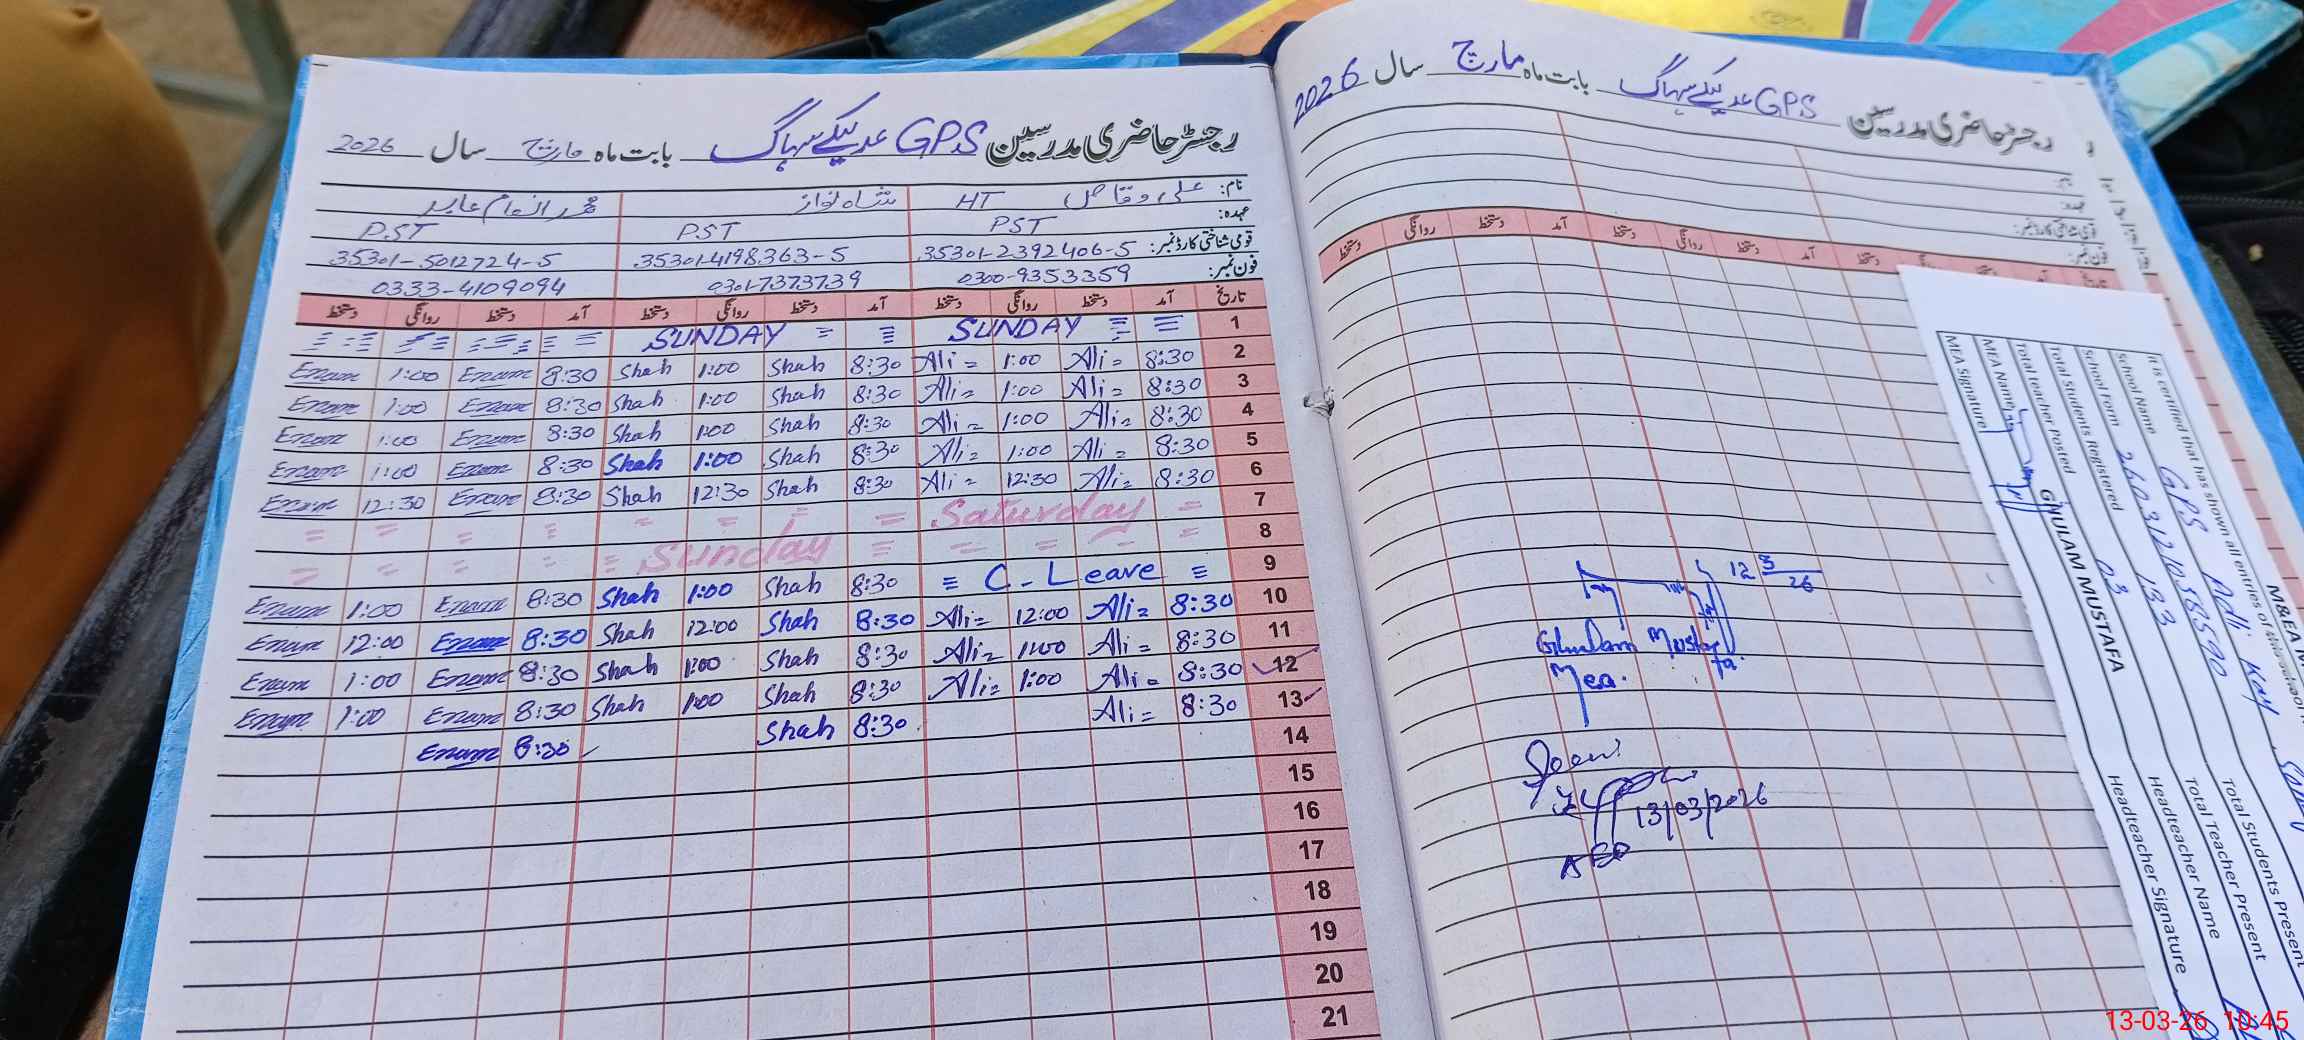 رجسٹر حاضری مدرسین GPS عدلیکے سہاگ بابت ماہ مارچ سال 2026
نام: علی وقاص HT شاہ نواز محمد انعام عابد
عہدہ: PST PST PST
قومی شناختی کارڈ نمبر: 35301-2392406-5 35301-4198363-5 35301-5012724-5
فون نمبر: 0300-9353359 0301-7373739 0333-4109094
تاریخ آمد دستخط روانگی دستخط آمد دستخط روانگی دستخط آمد دستخط روانگی دستخط
1 SUNDAY SUNDAY
2 8:30 Ali 1:00 Ali 8:30 Shah 1:00 Shah 8:30 Enam 1:00 Enam
3 8:30 Ali 1:00 Ali 8:30 Shah 1:00 Shah 8:30 Enam 1:00 Enam
4 8:30 Ali 1:00 Ali 8:30 Shah 1:00 Shah 8:30 Enam 1:00 Enam
5 8:30 Ali 1:00 Ali 8:30 Shah 1:00 Shah 8:30 Enam 1:00 Enam
6 8:30 Ali 12:30 Ali 8:30 Shah 12:30 Shah 8:30 Enam 12:30 Enam
7 Saturday
8 Sunday
9 C-Leave 8:30 Shah 1:00 Shah 8:30 Enam 1:00 Enam
10 8:30 Ali 12:00 Ali 8:30 Shah 12:00 Shah 8:30 Enam 12:00 Enam
11 8:30 Ali 1:00 Ali 8:30 Shah 1:00 Shah 8:30 Enam 1:00 Enam
12 8:30 Ali 1:00 Ali 8:30 Shah 1:00 Shah 8:30 Enam 1:00 Enam
13 8:30 Ali 8:30 Shah 8:30 Enam
14
15
16
17
18
19
20
21
رجسٹر حاضری مدرسین GPS عدلیکے سہاگ بابت ماہ مارچ سال 2026
قومی شناختی کارڈ نمبر:
فون نمبر:
آمد دستخط روانگی دستخط آمد دستخط روانگی دستخط
12 3/26
Ghulam Mustafa
Mea.
Seen
13/03/2026
AEO
M&EA
It is certified that has shown all entries of
School Name GPS Adli Kay
School Form
Total Students Registered 133
Total teacher Posted 03
MEA Name GHULAM MUSTAFA
MEA Signature
Total Students Present
Total Teacher Present
Headteacher Name
Headteacher Signature
13-03-26 10:45